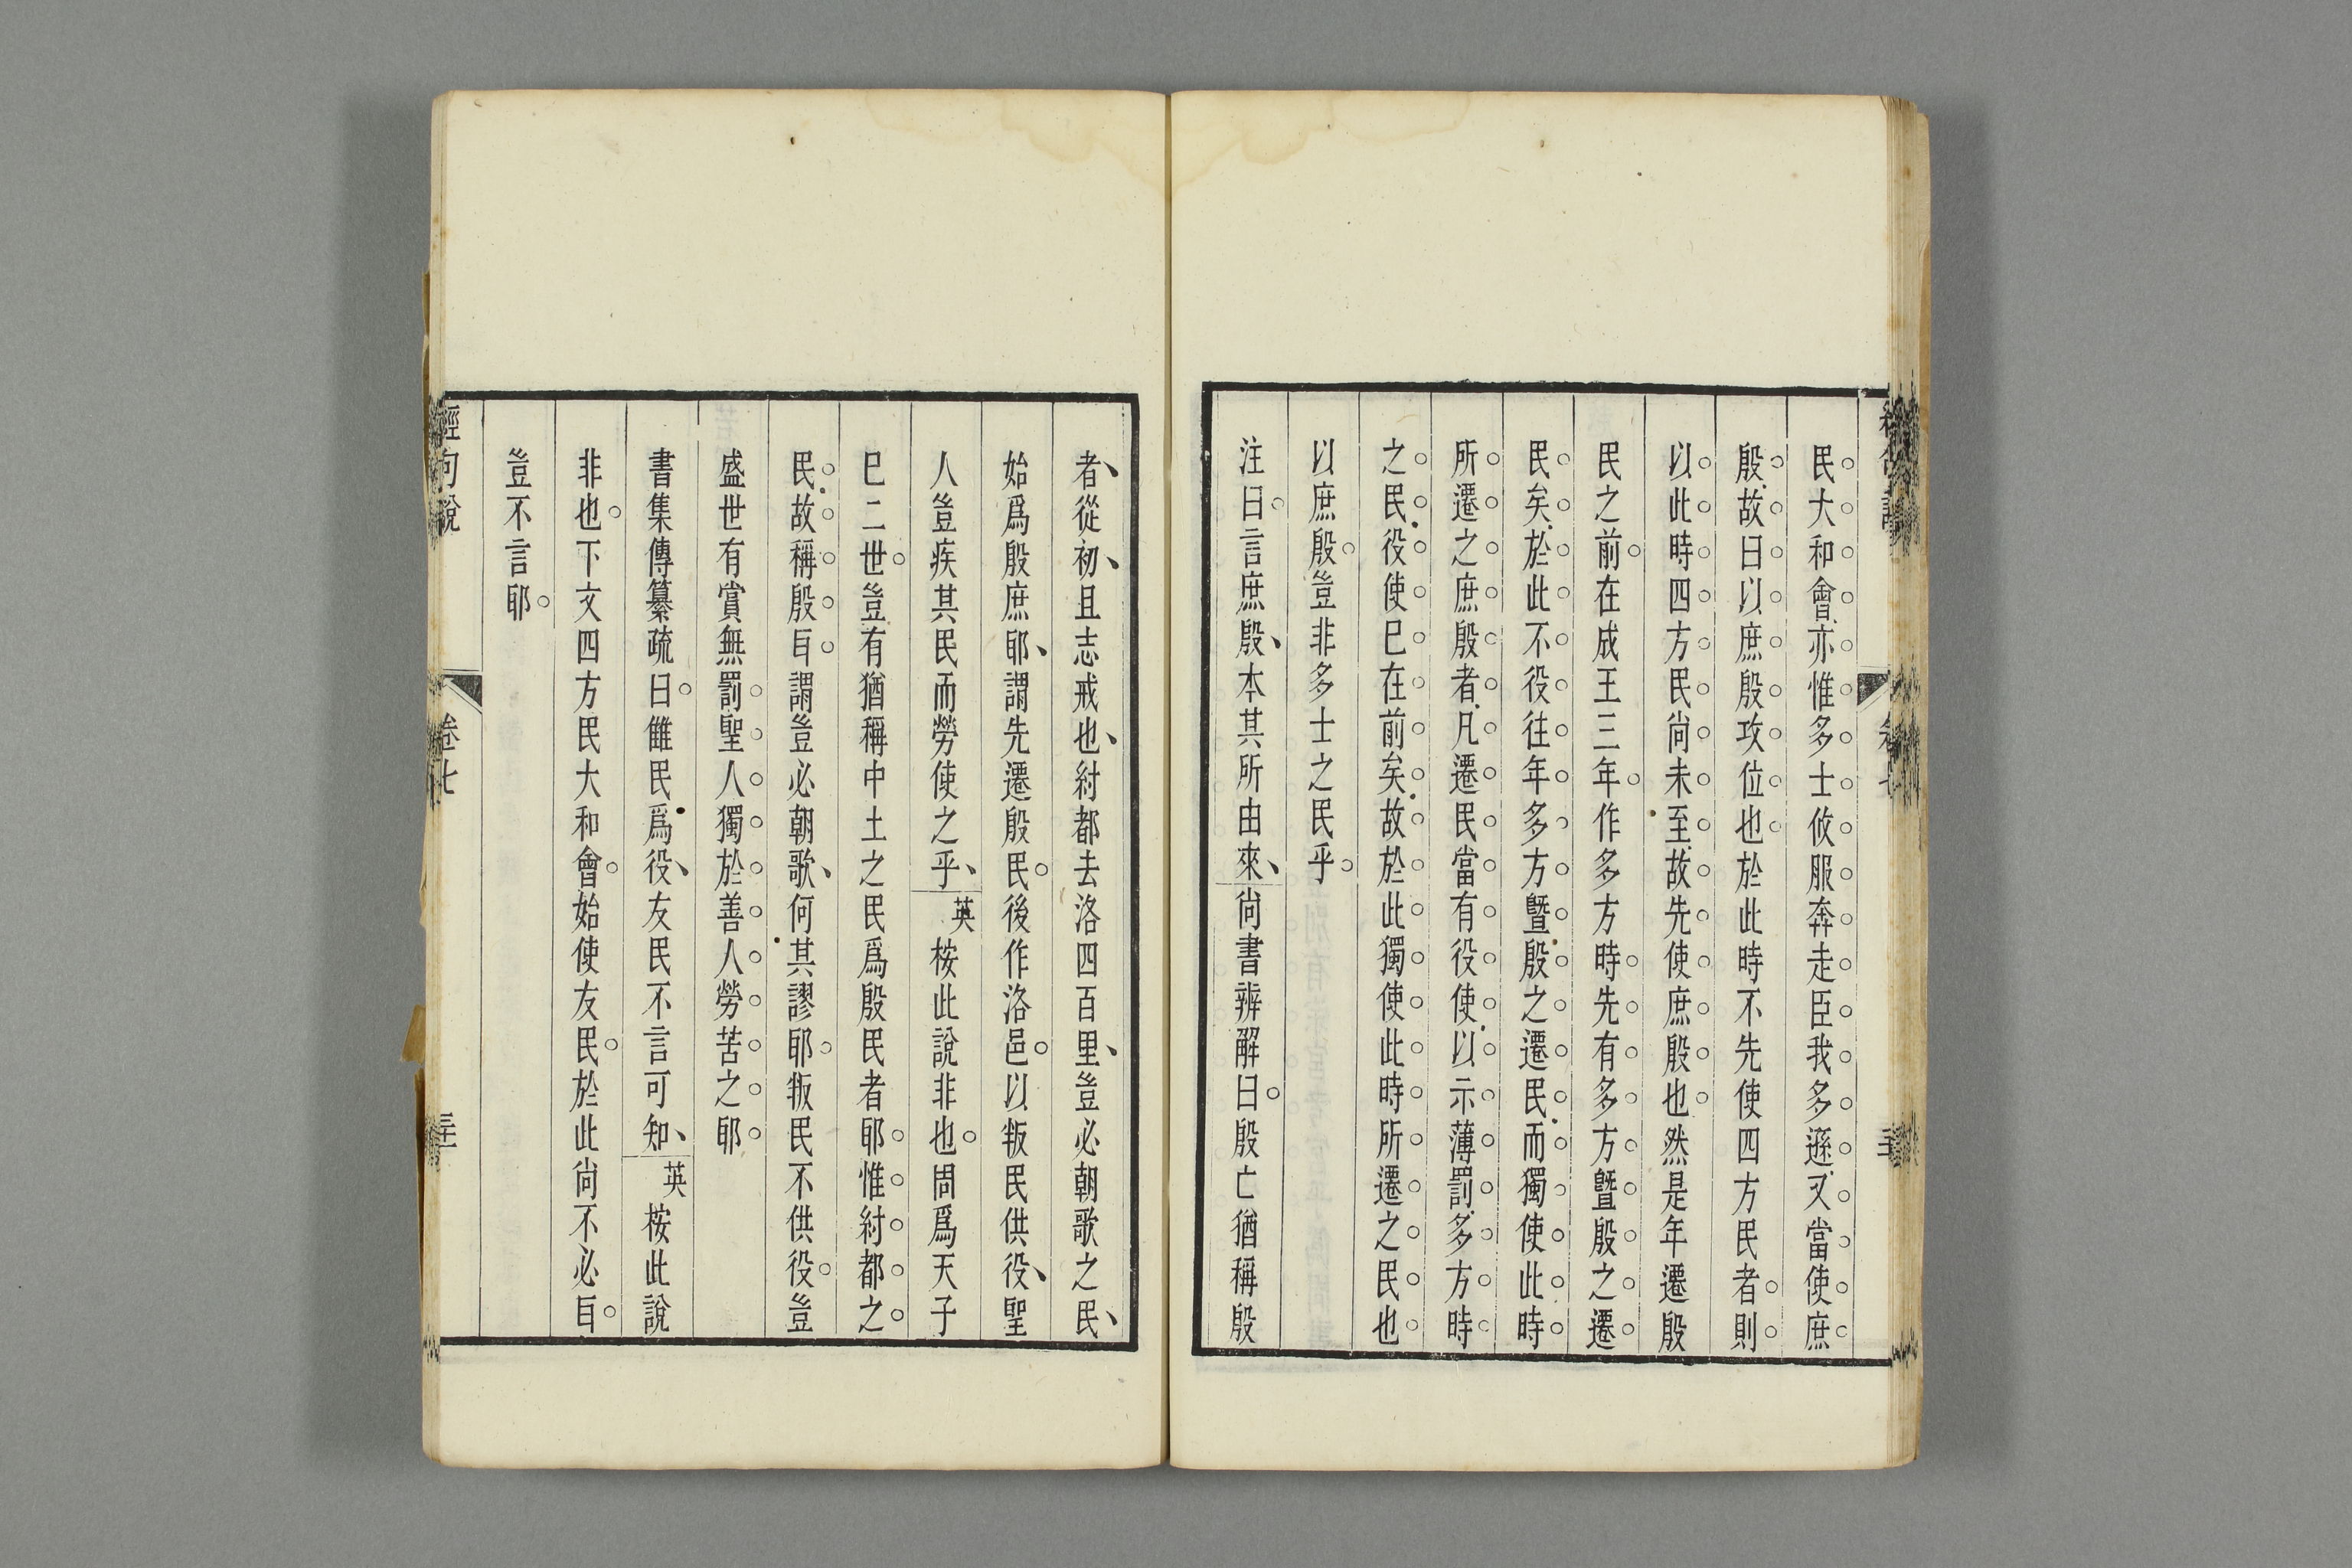 民大和會亦惟多士攸服奔走臣我多遜又當使庶
殷故曰以庶殷攻位也於此時不先使四方民者則
以此時四方民尚未至故先使庶殷也然是年遷殷
民之前在成王三年作多方時先有多方曁殷之遷
民矣於此不役往年多方曁殷之遷民而獨使此時
所遷之庶殷者凡遷民當有役使以示薄罰多方時
之民役使巳在前矣故於此獨使此時所遷之民也
以庶殷豈非多士之民乎
注曰言庶殷本其所由來尚書辨解曰殷亡猶稱殷
者從初且志戒也紂都去洛四百里豈必朝歌之民
始爲殷庶耶謂先遷殷民後作洛邑以叛民供役聖
人豈疾其民而勞使之乎英桉此說非也周爲天子
巳二世豈有猶稱中土之民爲殷民者耶惟紂都之
民故稱殷㠯謂豈必朝歌何其謬耶叛民不供役豈
盛世有賞無罰聖人獨於善人勞苦之耶
書集傳纂疏曰讎民爲役友民不言可知英桉此說
非也下文四方民大和會始使友民於此尚不必㠯
豈不言耶
經句說
卷七